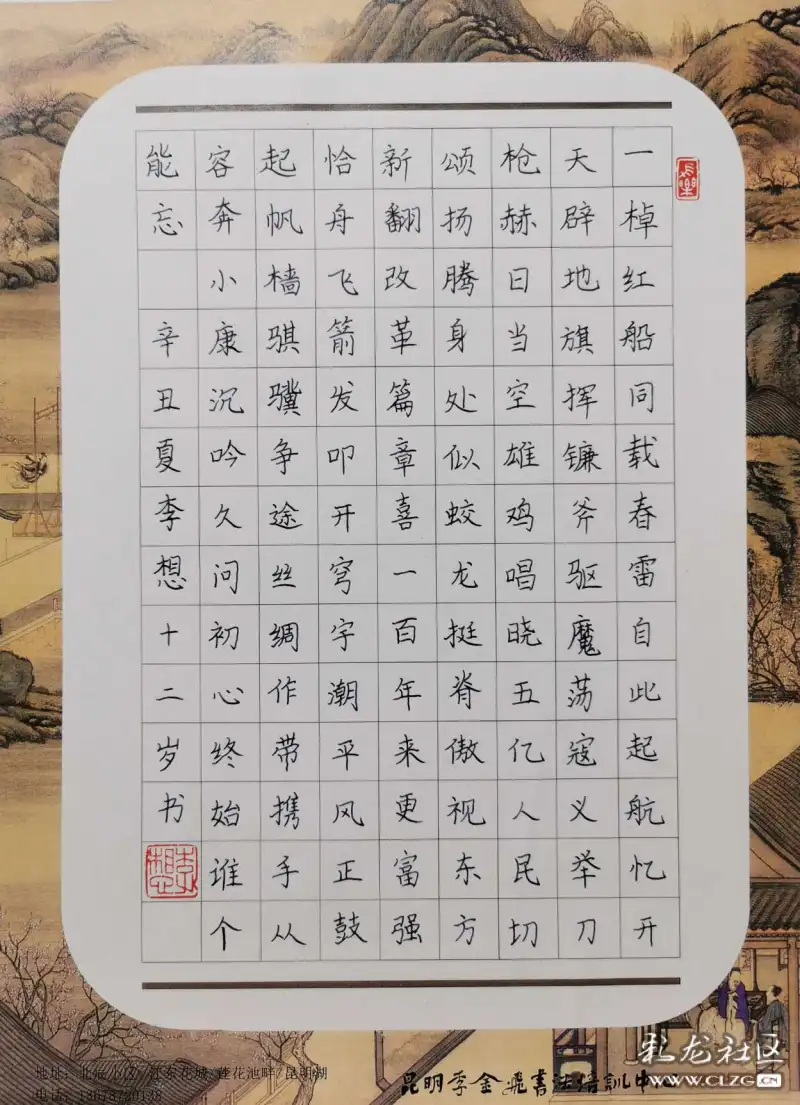 一棹红船同载春雷自此起航忆开
天辟地旗挥镰斧驱魔荡寇义举刀
枪赫日当空雄鸡唱晓五亿人民切
颂扬腾身处似蛟龙挺脊傲视东方
新翻改革篇章喜一百年来更富强
恰舟飞箭发叩开穹宇潮平风正鼓
起帆樯骐骥争途丝绸作带携手从
容奔小康沉吟久问初心终始谁个
能忘 辛丑夏李想十二岁书
李想
長樂
昆明李金飛書法培訓中心
地址：北辰小区/江东花城/莲花池畔/昆明湖
电话：
彩龙社区
WWW.CLZG.CN